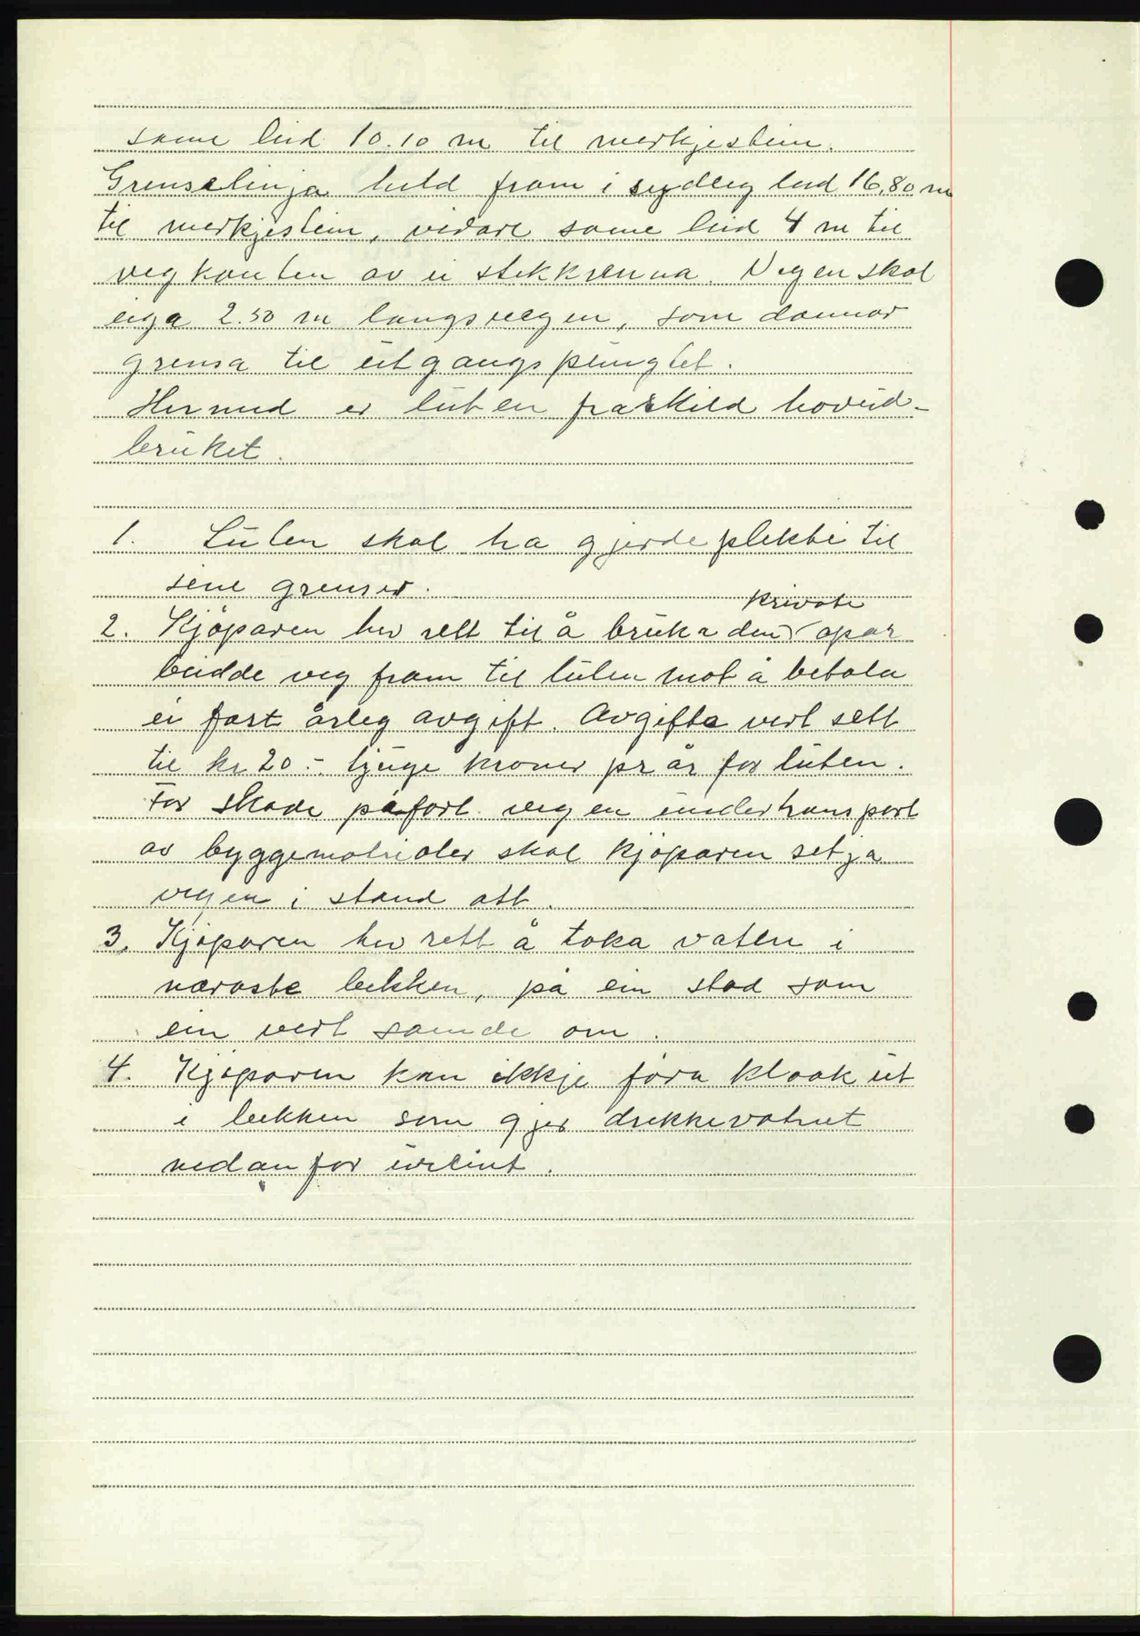 same leid 10.10 m til merkjestein.
Grenselinja held fram i sydleg leid 16,80 m
til merkjestein, vidare same leid 4 m til
vegkanten av ei stikkrenna. Vegen skal
eiga 2.50 m langs vegen, som dannar
grensa til utgangspungtet.
Hermed er luten fraskild hovud-
bruket.
1. Luten skal ha gjerdeplikti til
sine grenser.
private
2. Kjöparen hev rett til å bruka den opar
beidde veg fram til luten mot å betala
ei fast årleg avgift. Avgifta vert sett
til kr 20.- tjuge kroner pr år for luten.
For skade påfört vegen under transport
av byggematrialer skal kjöparen setja
vegen i stand att.
3. Kjöparen hev rett å taka vaten i
næraste bekken, på ein stad som
ein vert samde om.
4. Kjöparen kan ikkje föra kloak ut
i bekken som gjer drikkevatnet
nedanfor ureint.